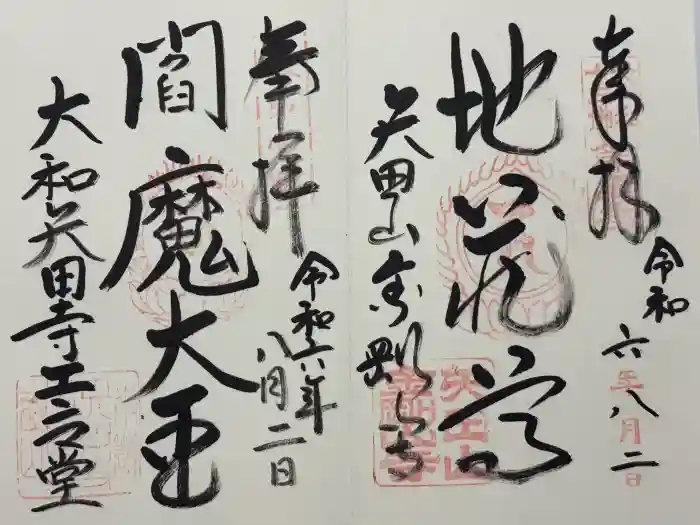 奉拝
令和六年八月二日
地蔵尊
矢田山金剛山寺
奉拝
令和六年八月二日
閻魔大王
大和矢田寺エンマ堂